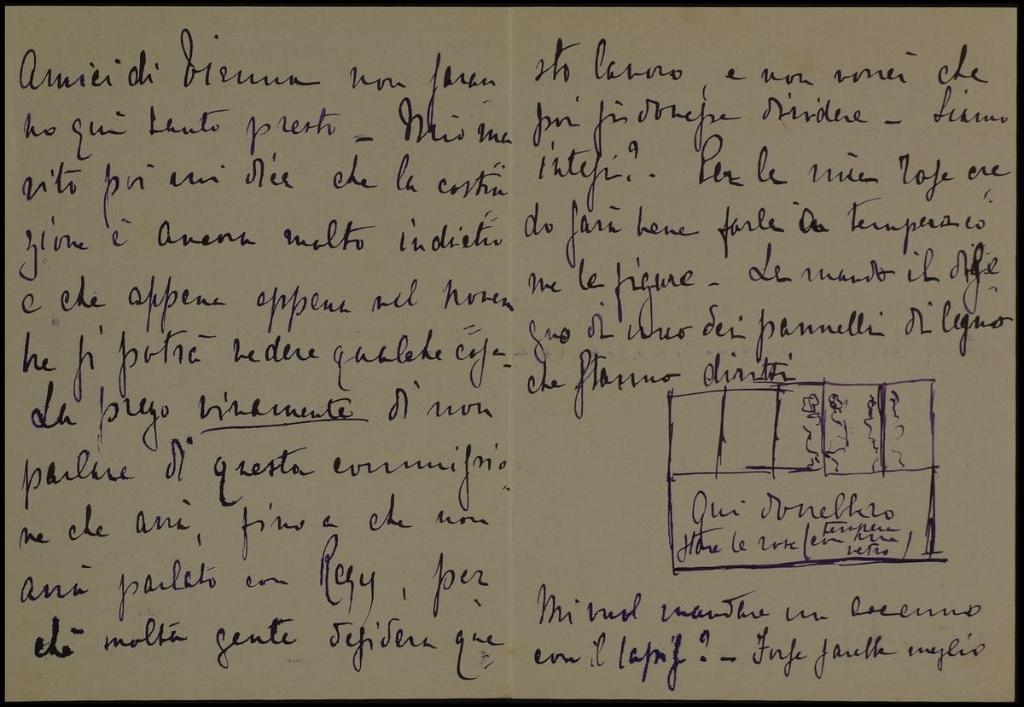 Amici di Vienna non saran
no quì tanto presto – Mio ma
rito poi mi dice che la costru
zione è ancora molto indietro
e che appena appena nel novem
bre si potrà vedere qualche cosa –
La prego vivamente di non
parlare di questa commissio
ne che avrà, fino a che non
avrà parlato con Regy, per
chè molta gente desidera que
sto lavoro, e non vorrei che
poi si dovesse dividere – Siamo
intesi? – Per le mie rose cre
do sarà bene farle a tempera co
me le figure – Le mando il dise
gno di uno dei pannelli di legno
che stanno diritti
Qui dovrebbero
stare le rose (tempera
con vetro)
Mi vuol mandare un accenno
con il lapis? – Forse sarebbe meglio